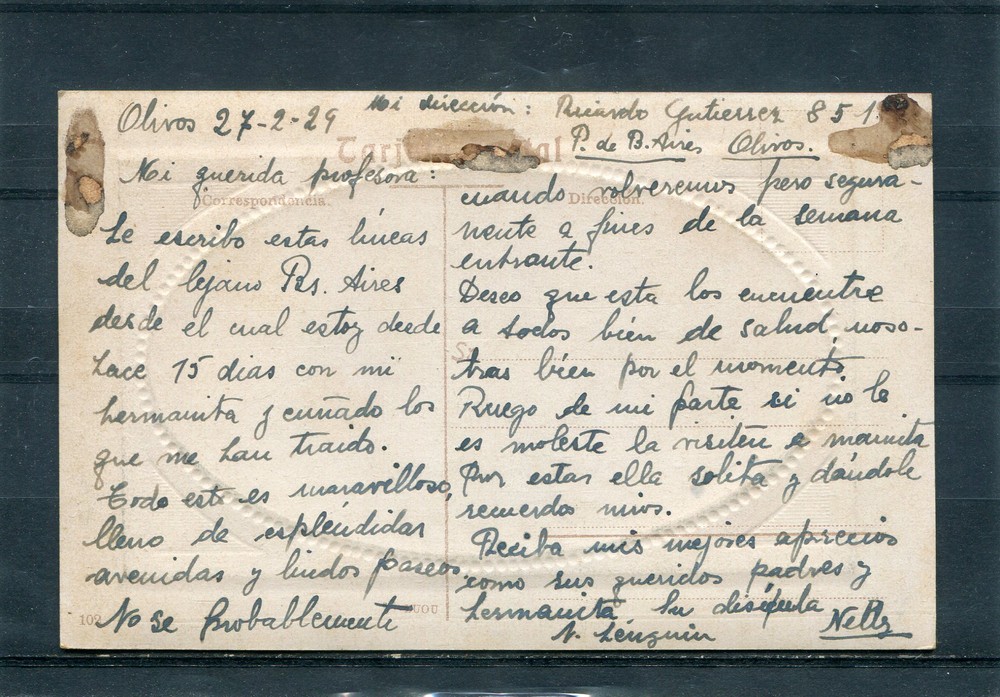 Olivos 27-2-29
Mi dirección: Ricardo Gutierrez 851.
P. de B. Aires Olivos.
Tarjeta Postal
Mi querida profesora:
Correspondencia.
Le escribo estas líneas
del lejano Bs. Aires
desde el cual estoy desde
hace 15 dias con mi
hermanita y cuñado los
que me han traido.
Todo esto es maravilloso,
lleno de espléndidas
avenidas y lindos paseos
No se probablemente
102
cuando volveremos pero segura-
Dirección.
mente a fines de la semana
entrante.
Deseo que esta los encuentre
a todos bién de salud, noso-
tras bién por el momento
Ruego de mi parte si no le
es moleste la visiten a mamita
por estar ella solita y dándole
recuerdos mios.
Reciba mis mejores aprecios
como sus queridos padres y
hermanita. Su discípula
N. Nelly